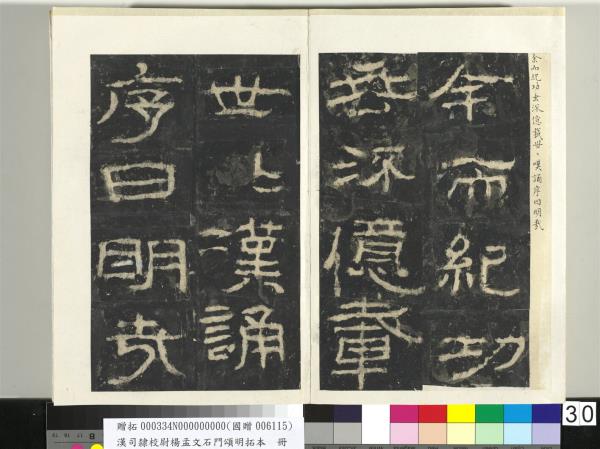 余而紀功垂流億載世〻嘆誦序曰明哉
余而紀功
垂流億載
世〻嘆誦
序曰明哉
贈拓 000334N000000000(國贈 006115)
漢司隸校尉楊孟文石門頌明拓本 冊
30